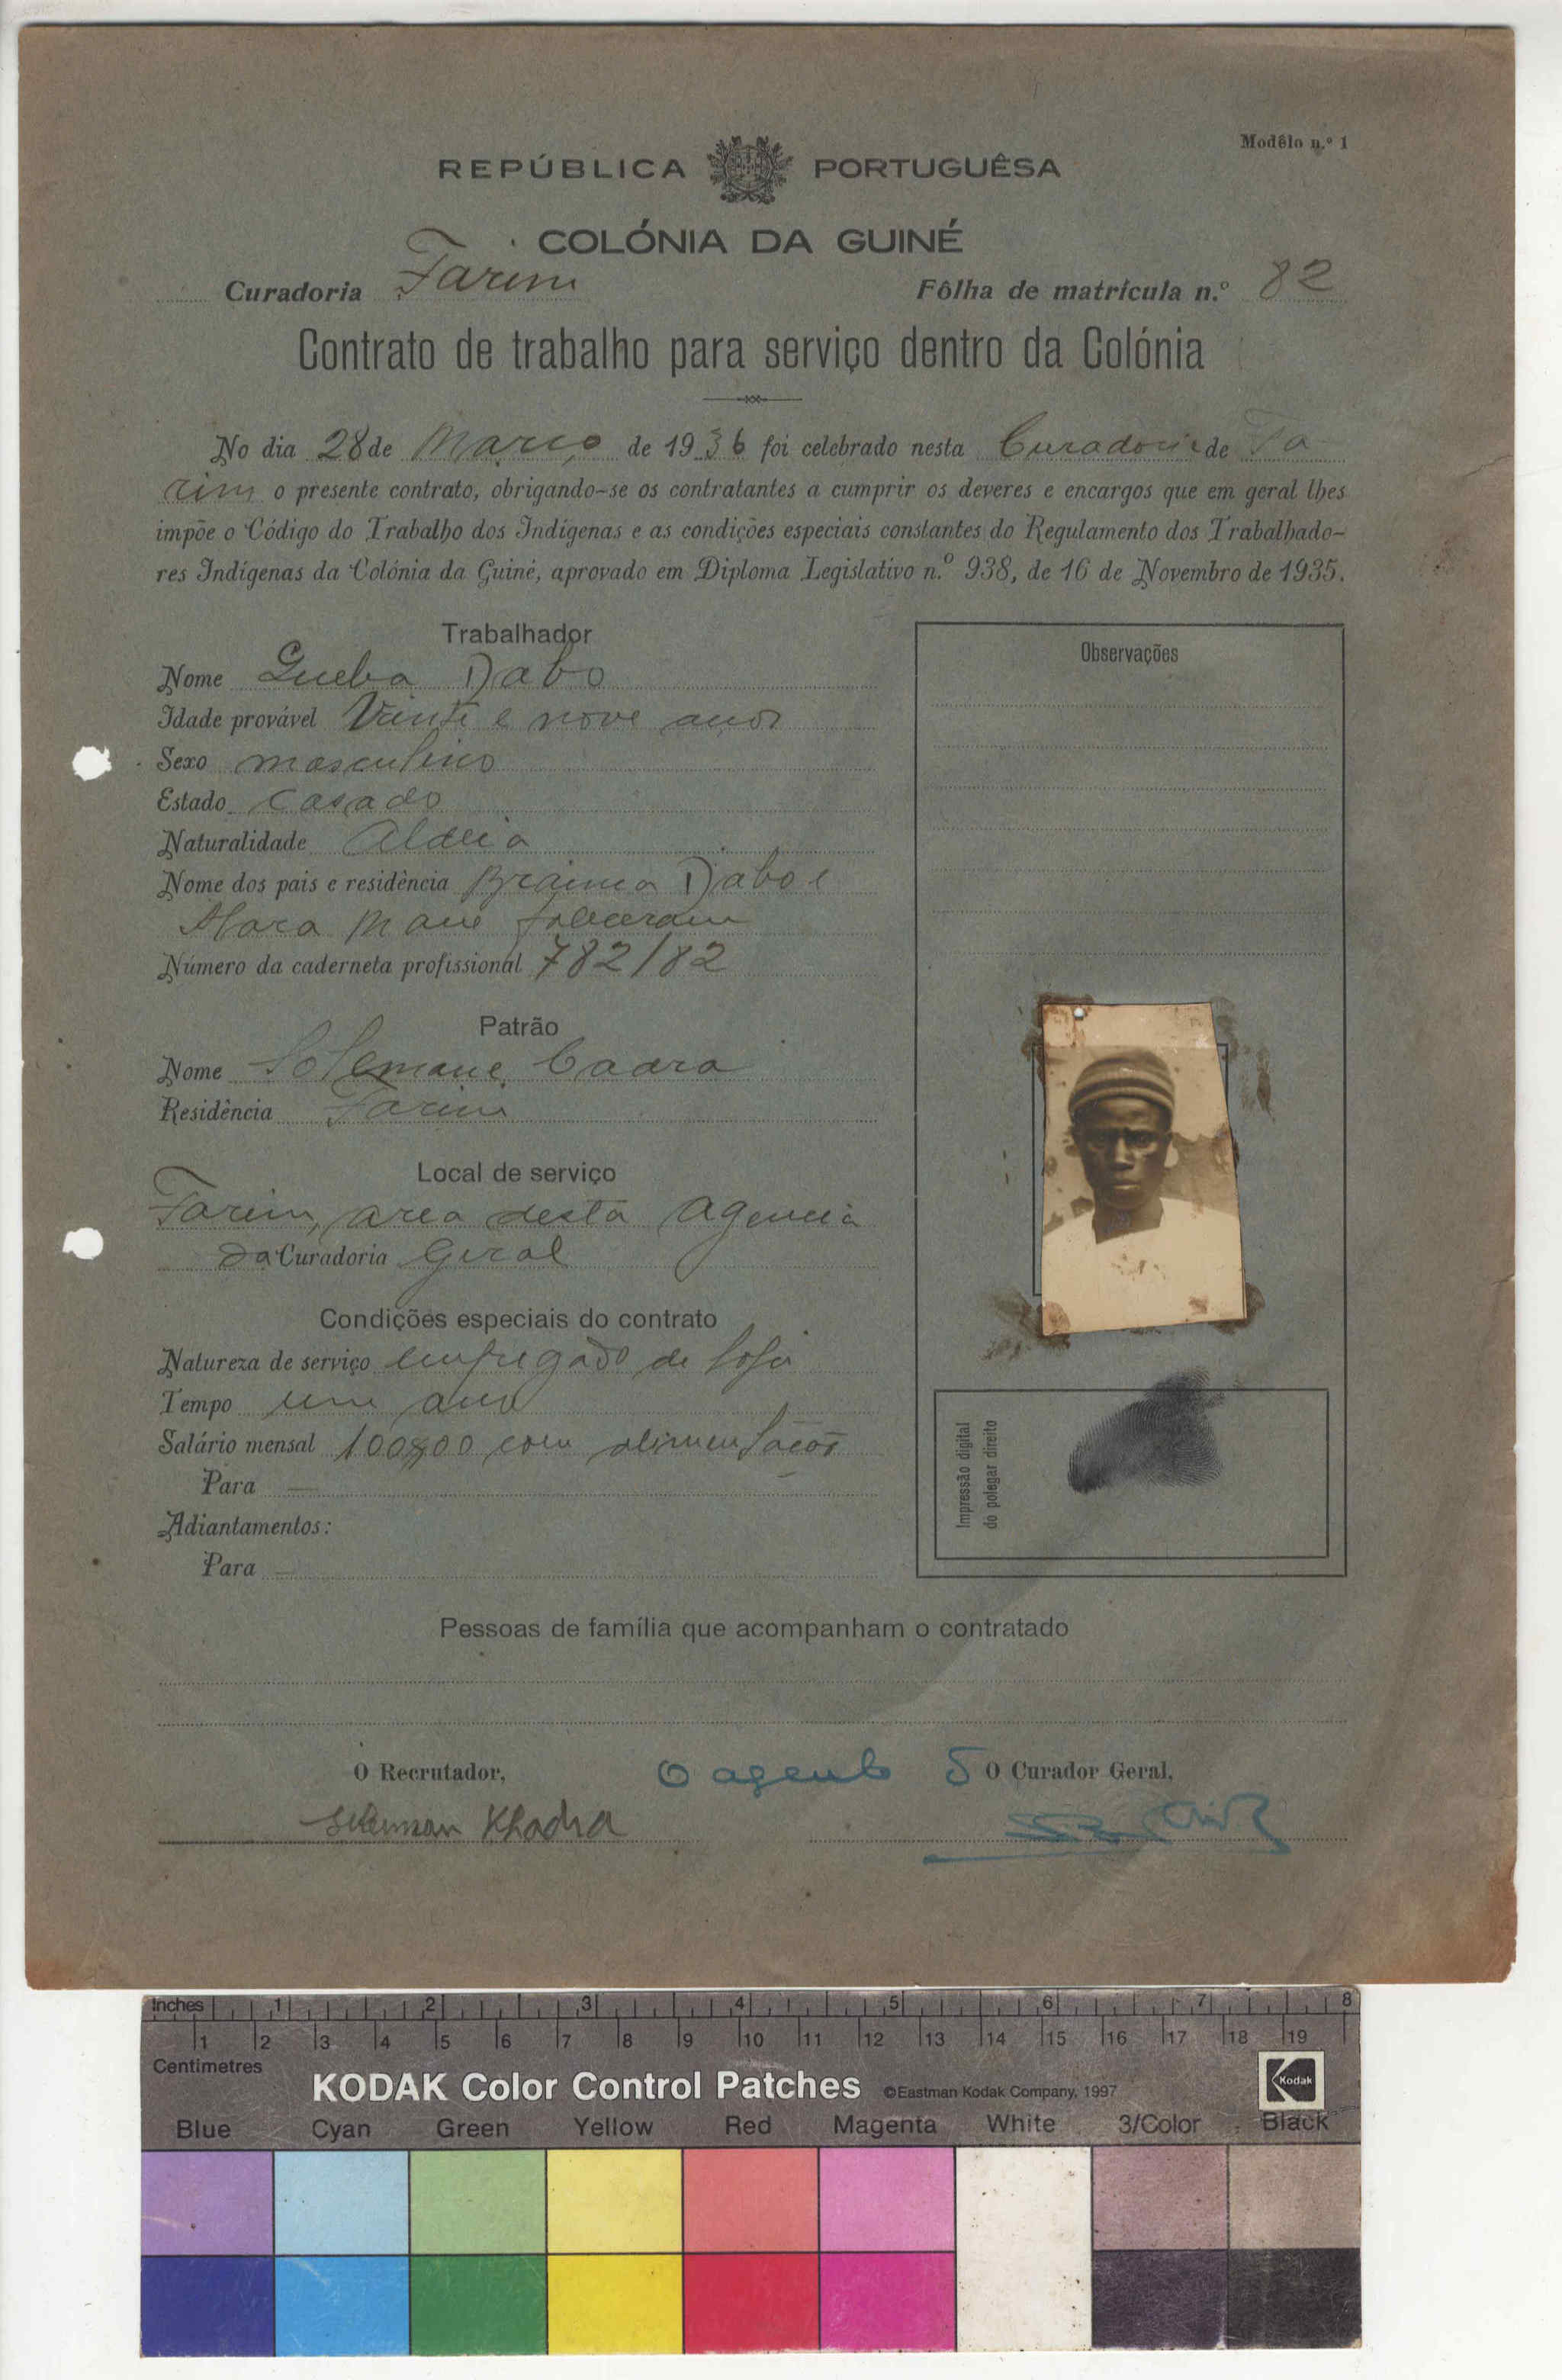 Modêlo n.º 1
REPÚBLICA PORTUGUÊSA
COLÓNIA DA GUINÉ
Curadoria Farim Fôlha de matrícula n.º 82
Contrato de trabalho para serviço dentro da Colónia
No dia 28 de Março de 1936 foi celebrado nesta Curadoria de Fa
rim o presente contrato, obrigando-se os contratantes a cumprir os deveres e encargos que em geral lhes
impõe o Código do Trabalho dos Indígenas e as condições especiais constantes do Regulamento dos Trabalhado-
res Indígenas da Colónia da Guiné, aprovado em Diploma Legislativo n.º 938, de 16 de Novembro de 1935.
Trabalhador
Nome Queba Dabo
Idade provável Vinte e nove anos
Sexo masculino
Estado casado
Naturalidade Aldeia
Nome dos pais e residência Braima Dabo e
Mané faleceram
Número da caderneta profissional 782/82
Patrão
Nome Solemane Cadra
Residência Farim
Local de serviço
Farim, area desta Agencia
da Curadoria Geral
Condições especiais do contrato
Natureza de serviço empregado de loja
Tempo um ano
Salário mensal 100$00 com alimentação
Para —
Adiantamentos:
Para —
Observações
Impressão digital
do polegar direito
Pessoas de família que acompanham o contratado
O Recrutador, O agente O Curador Geral,
Khadra
Inches 1 2 3 4 5 6 7 8
1 2 3 4 5 6 7 8 9 10 11 12 13 14 15 16 17 18 19
Centimetres
KODAK Color Control Patches ©Eastman Kodak Company, 1997 Kodak
Blue Cyan Green Yellow Red Magenta White 3/Color Black